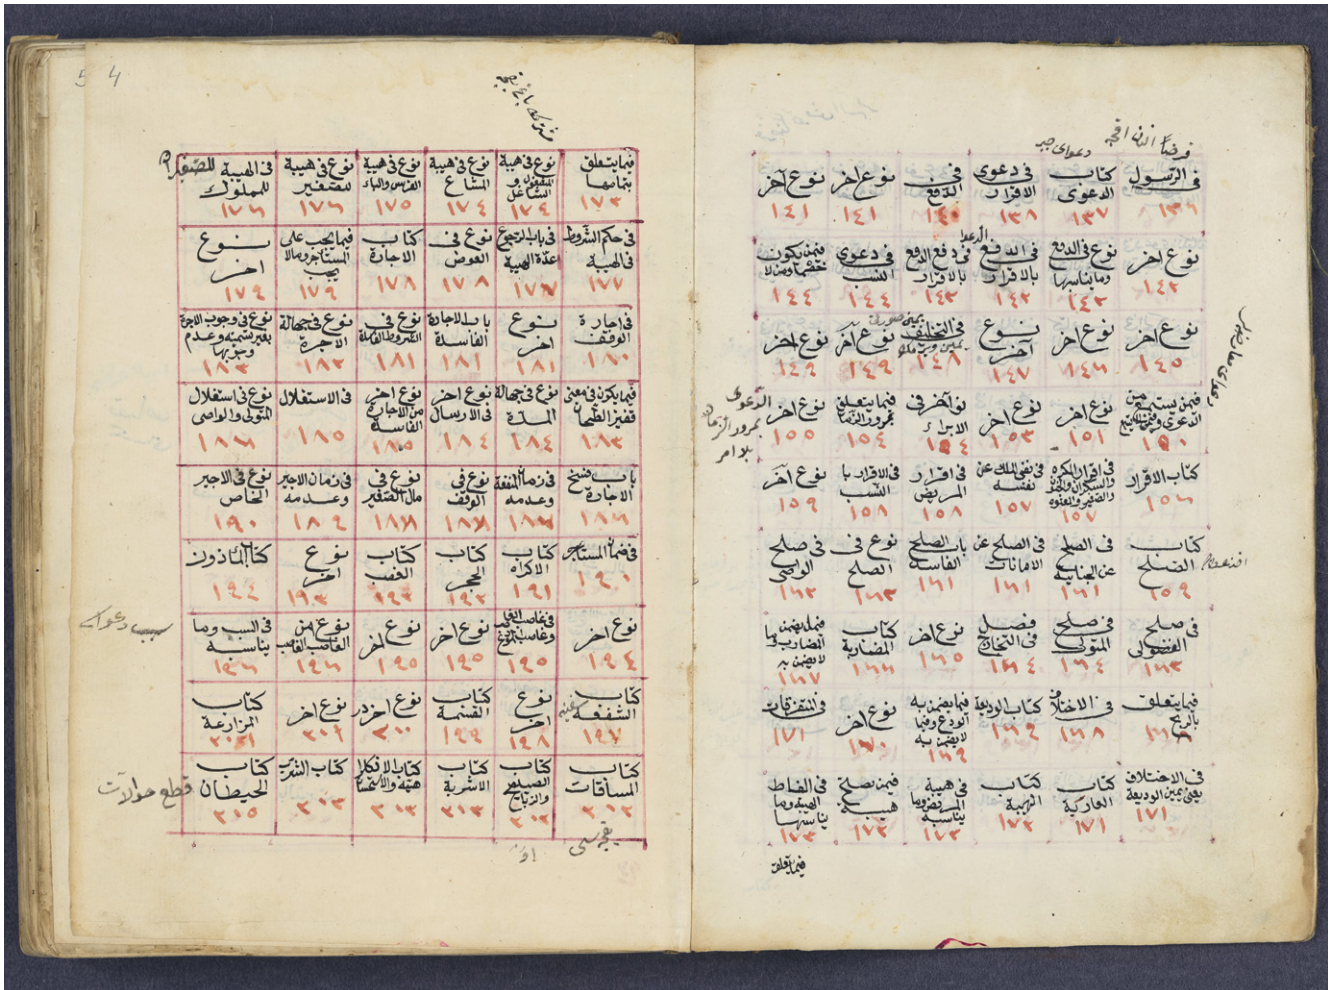 فى الرسول
١٣٦
كتاب
الدعوى
١٣٧
فى دعوى
الاقرار
١٣٨
فى
الدفع
١٤٠
نوع اخر
١٤١
نوع آخر
١٤١
نوع اخر
١٤٢
نوع فى الدفع
وما يناسبها
١٤٢
فى الدفع
بالاقرار
١٤٢
فى دفع الدفع
بالاقرار
١٤٣
فى دعوى
النسب
١٤٤
فيمن يكون
خصما ومن لا
١٤٤
نوع اخر
١٤٥
نوع اخر
١٤٦
نوع
آخر
١٤٧
فى التحليف
١٤٨
نوع آخر
١٤٩
نوع اخر
١٤٩
فيمن يستمع من
الدعوى
١٥٠
نوع اخر
١٥١
نوع اخر
١٥٣
نوع آخر فى
الابراء
١٥٤
فيما يتعلق
بمرور الزمان
١٥٤
نوع اخر
١٥٥
الدعوى
بمرور الزمان
بلا امر
كتاب الاقرار
١٥٦
فى اقرار المكره
والسكران
والصغير والمعتوه
١٥٧
فى نفى الملك عن
نفسه
١٥٧
فى اقرار
المريض
١٥٨
فى الاقرار با
النسب
١٥٨
نوع آخر
١٥٩
كتاب
الصلح
١٥٩
فى الصلح
عن الجنايه
١٦١
فى الصلح عن
الامانات
١٦١
باب الصلح
الفاسد
١٦١
نوع فى
الصلح
١٦٣
فى صلح
الوصى
١٦٣
فى صلح
الفضولى
١٦٣
فى صلح
المتولى
١٦٤
فصل
فى التخارج
١٦٤
نوع اخر
١٦٥
كتاب
المضاربة
١٦٦
فيما يضمن
المضارب وما
لا يضمن به
١٦٧
فيما يتعلق
بالربح
١٦٨
فى الاختلاف
١٦٨
كتاب الوديعة
١٦٩
فيما يضمن به
المودع وفيما
لا يضمن به
١٦٩
نوع اخر
١٧٠
فى المتفرقات
١٧١
فى الاختلاف
يعنى يمين الوديعة
١٧١
كتاب
العارية
١٧١
كتاب
الهبة
١٧٢
فى هبة
المريض وما
يناسبه
١٧٣
فيمن يصلح
هبته
١٧٣
فى الفاظ
الهبة وما
يناسبها
١٧٣
فيما يتعلق
4
فيما يتعلق
بتمامها
١٧٣
نوع فى هبة
المشغول و
الشاغل
١٧٤
نوع فى هبة
المشاع
١٧٤
نوع فى هبة
١٧٥
نوع فى هبة
للصغير
١٧٦
فى الهبة للصغير
للمملوك
١٧٦
فى حكم الشروط
فى الهبة
١٧٧
فى باب الرجوع
عن الهبة
١٧٧
نوع فى
العوض
١٧٨
كتاب
الاجارة
١٧٨
فيما يجب على
المستاجر ومالا
يجب
١٧٩
نوع
اخر
١٧٩
فى اجارة
الوقف
١٨٠
نوع
اخر
١٨١
باب الاجارة
الفاسدة
١٨١
نوع فى
الشروط الفاسدة
١٨١
نوع فى جهالة
الاجرة
١٨٢
نوع فى وجوب الاجرة
بغير تسمية وعدم
وجوبها
١٨٣
فيما يكون فى معنى
قفيز الطحان
١٨٣
نوع فى جهالة
المدة
١٨٤
نوع اخر
فى الارسال
١٨٤
نوع اخر
من الاجارة
الفاسدة
١٨٥
فى الاستغلال
١٨٥
نوع فى استغلال
المتولى والوصى
١٨٦
باب فسخ
الاجارة
١٨٦
وعدمه
نوع فى
الوقف
١٨٧
نوع فى
مال الصغير
١٨٨
فى ضمان الاجير
وعدمه
١٨٩
نوع فى الاجير
الخاص
١٩٠
فى ضمان المستاجر
١٩٠
كتاب
الاكراه
١٩١
كتاب
الحجر
١٩٢
كتاب
الغصب
نوع
اخر
١٩٣
كتاب المأذون
١٩٤
نوع اخر
١٩٤
فى غاصب الغاصب
١٩٥
نوع اخر
١٩٥
نوع اخر
١٩٥
نوع من
الغاصب الغاصب
١٩٦
فى السبب وما
يناسبه
١٩٦
كتاب
الشفعة
١٩٧
نوع
اخر
١٩٨
كتاب
القسمة
١٩٩
نوع اخر
٢٠٠
نوع اخر
كتاب
المزارعة
كتاب
المساقات
٢٠٢
كتاب
الصيد
والذبايح
٢٠٣
كتاب
الاشربة
٢٠٣
كتاب
٢٠٣
كتاب الشرب
٢٠٣
كتاب
الحيطان
٢٠٥
قطع حوالات